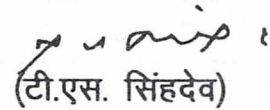 (टी.एस. सिंहदेव)